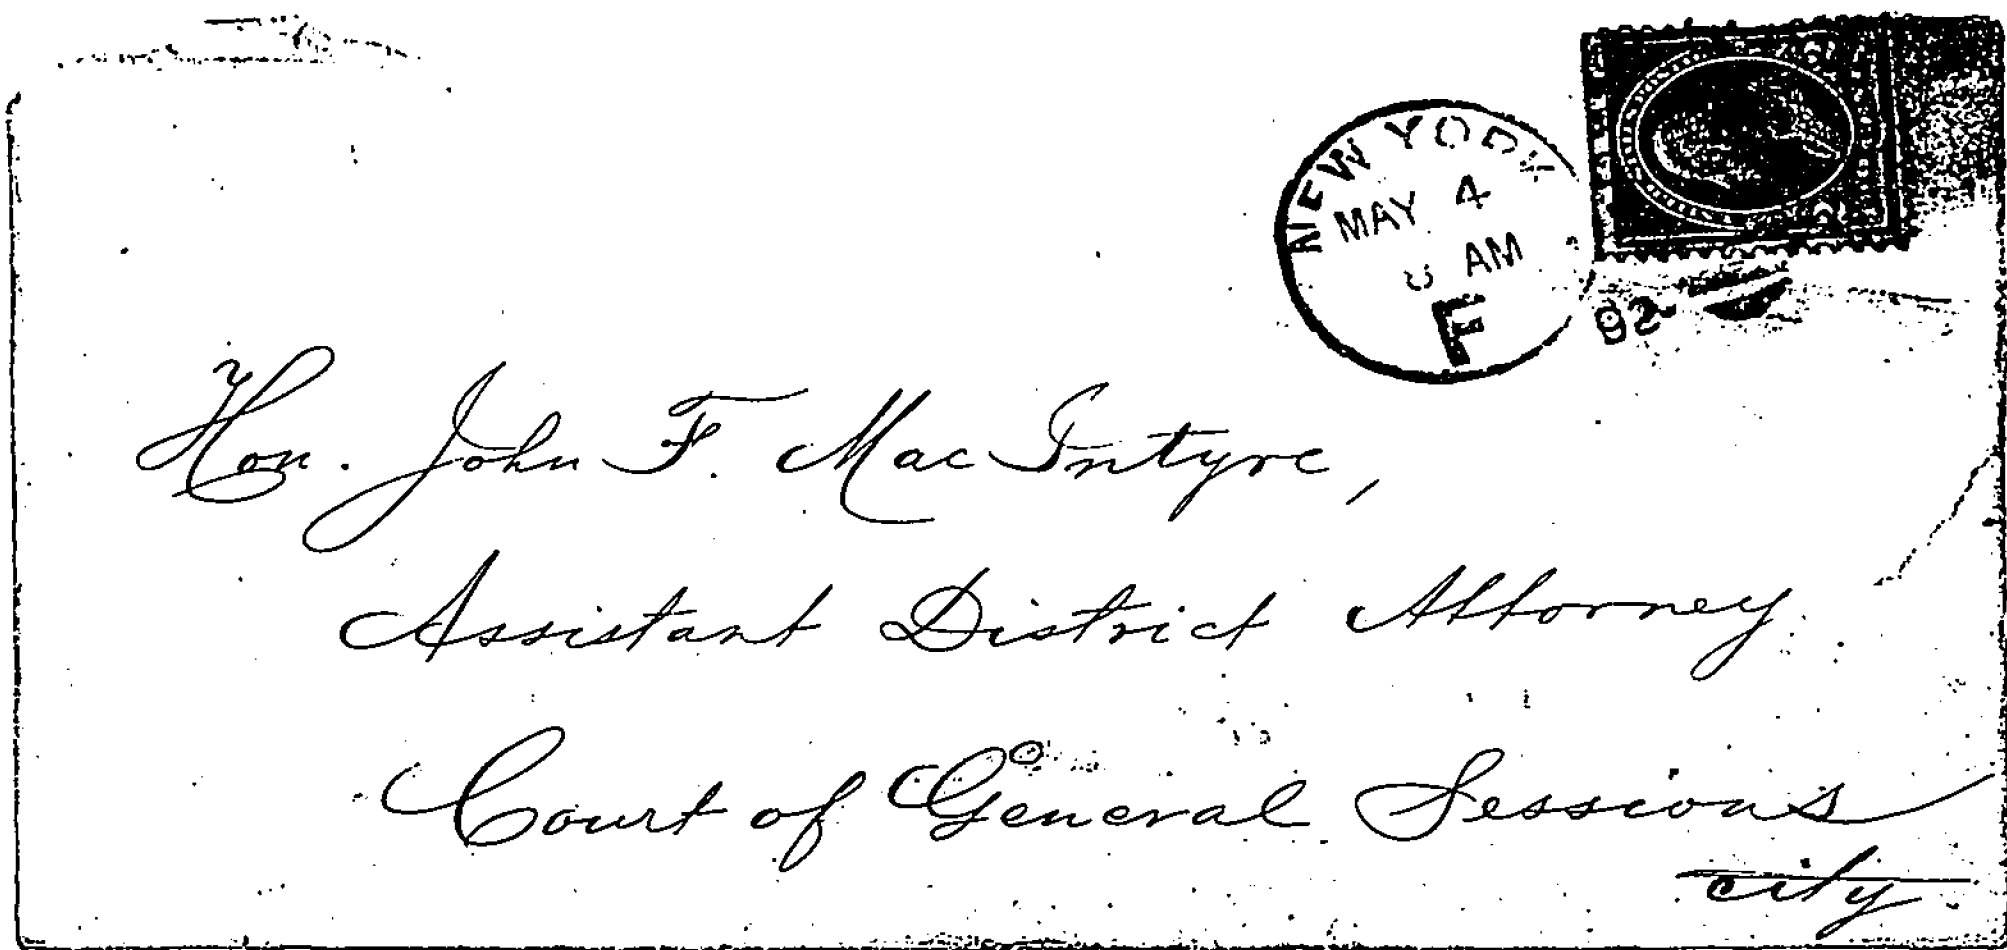 NEW YORK
MAY 4
AM
F
92
Hon. John F. MacIntyre,
Assistant District Attorney
Court of General Sessions
city